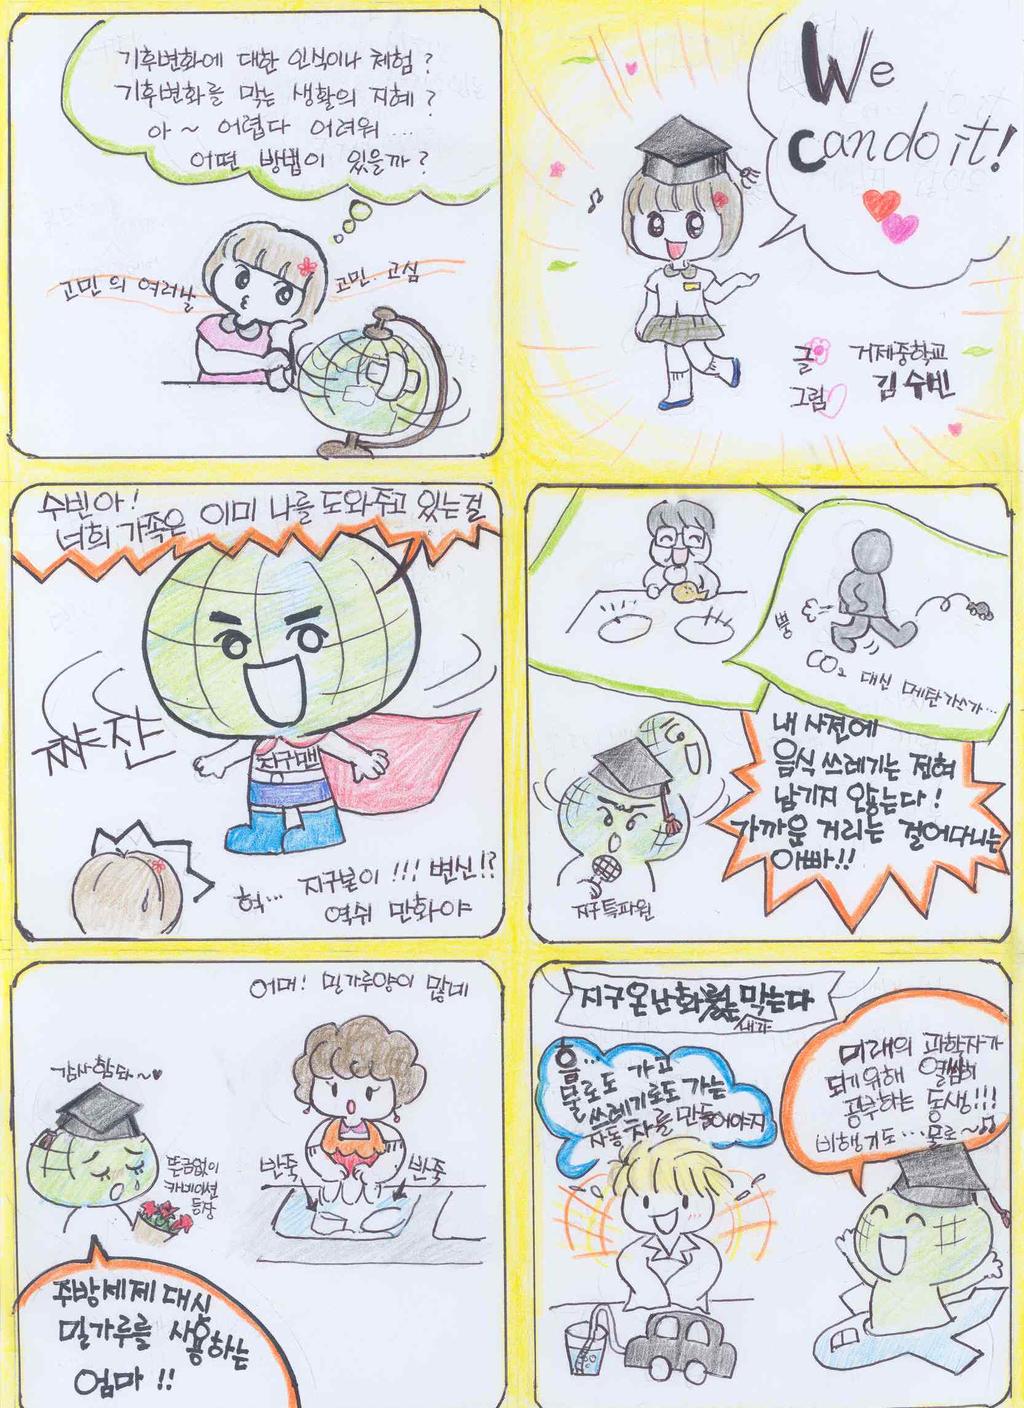 기후변화에 대한 인식이나 체험?
기후변화를 막는 생활의 지혜?
아~ 어렵다 어려워...
어떤 방법이 있을까?
고민의 여러날
고민. 고심
We
can do it!
글
그림
거제중학교
김수빈
수빈아!
너희 가족은 이미 나를 도와주고 있는걸
쟈쟌
지구맨
헉... 지구본이 !!! 변신!?
역쉬 만화야
뿡
CO₂ 대신 메탄가스가...
내 사전에
음식 쓰레기는 전혀
남기지 않는다!
가까운 거리는 걸어다니는
아빠!!
지구특파원
어머! 밀가루양이 많네
감사함돠~♥
뜬금없이
카네이션
등장
반죽
반죽
주방세제 대신
밀가루를 사용하는
엄마!!
지구온난화를 막는다
흠...
물로도 가고
쓰레기로도 가는
자동차를 만들어야지
미래의 과학자가
되기위해 열씸히
공부하는 동생!!!
비행기도...물로~♫